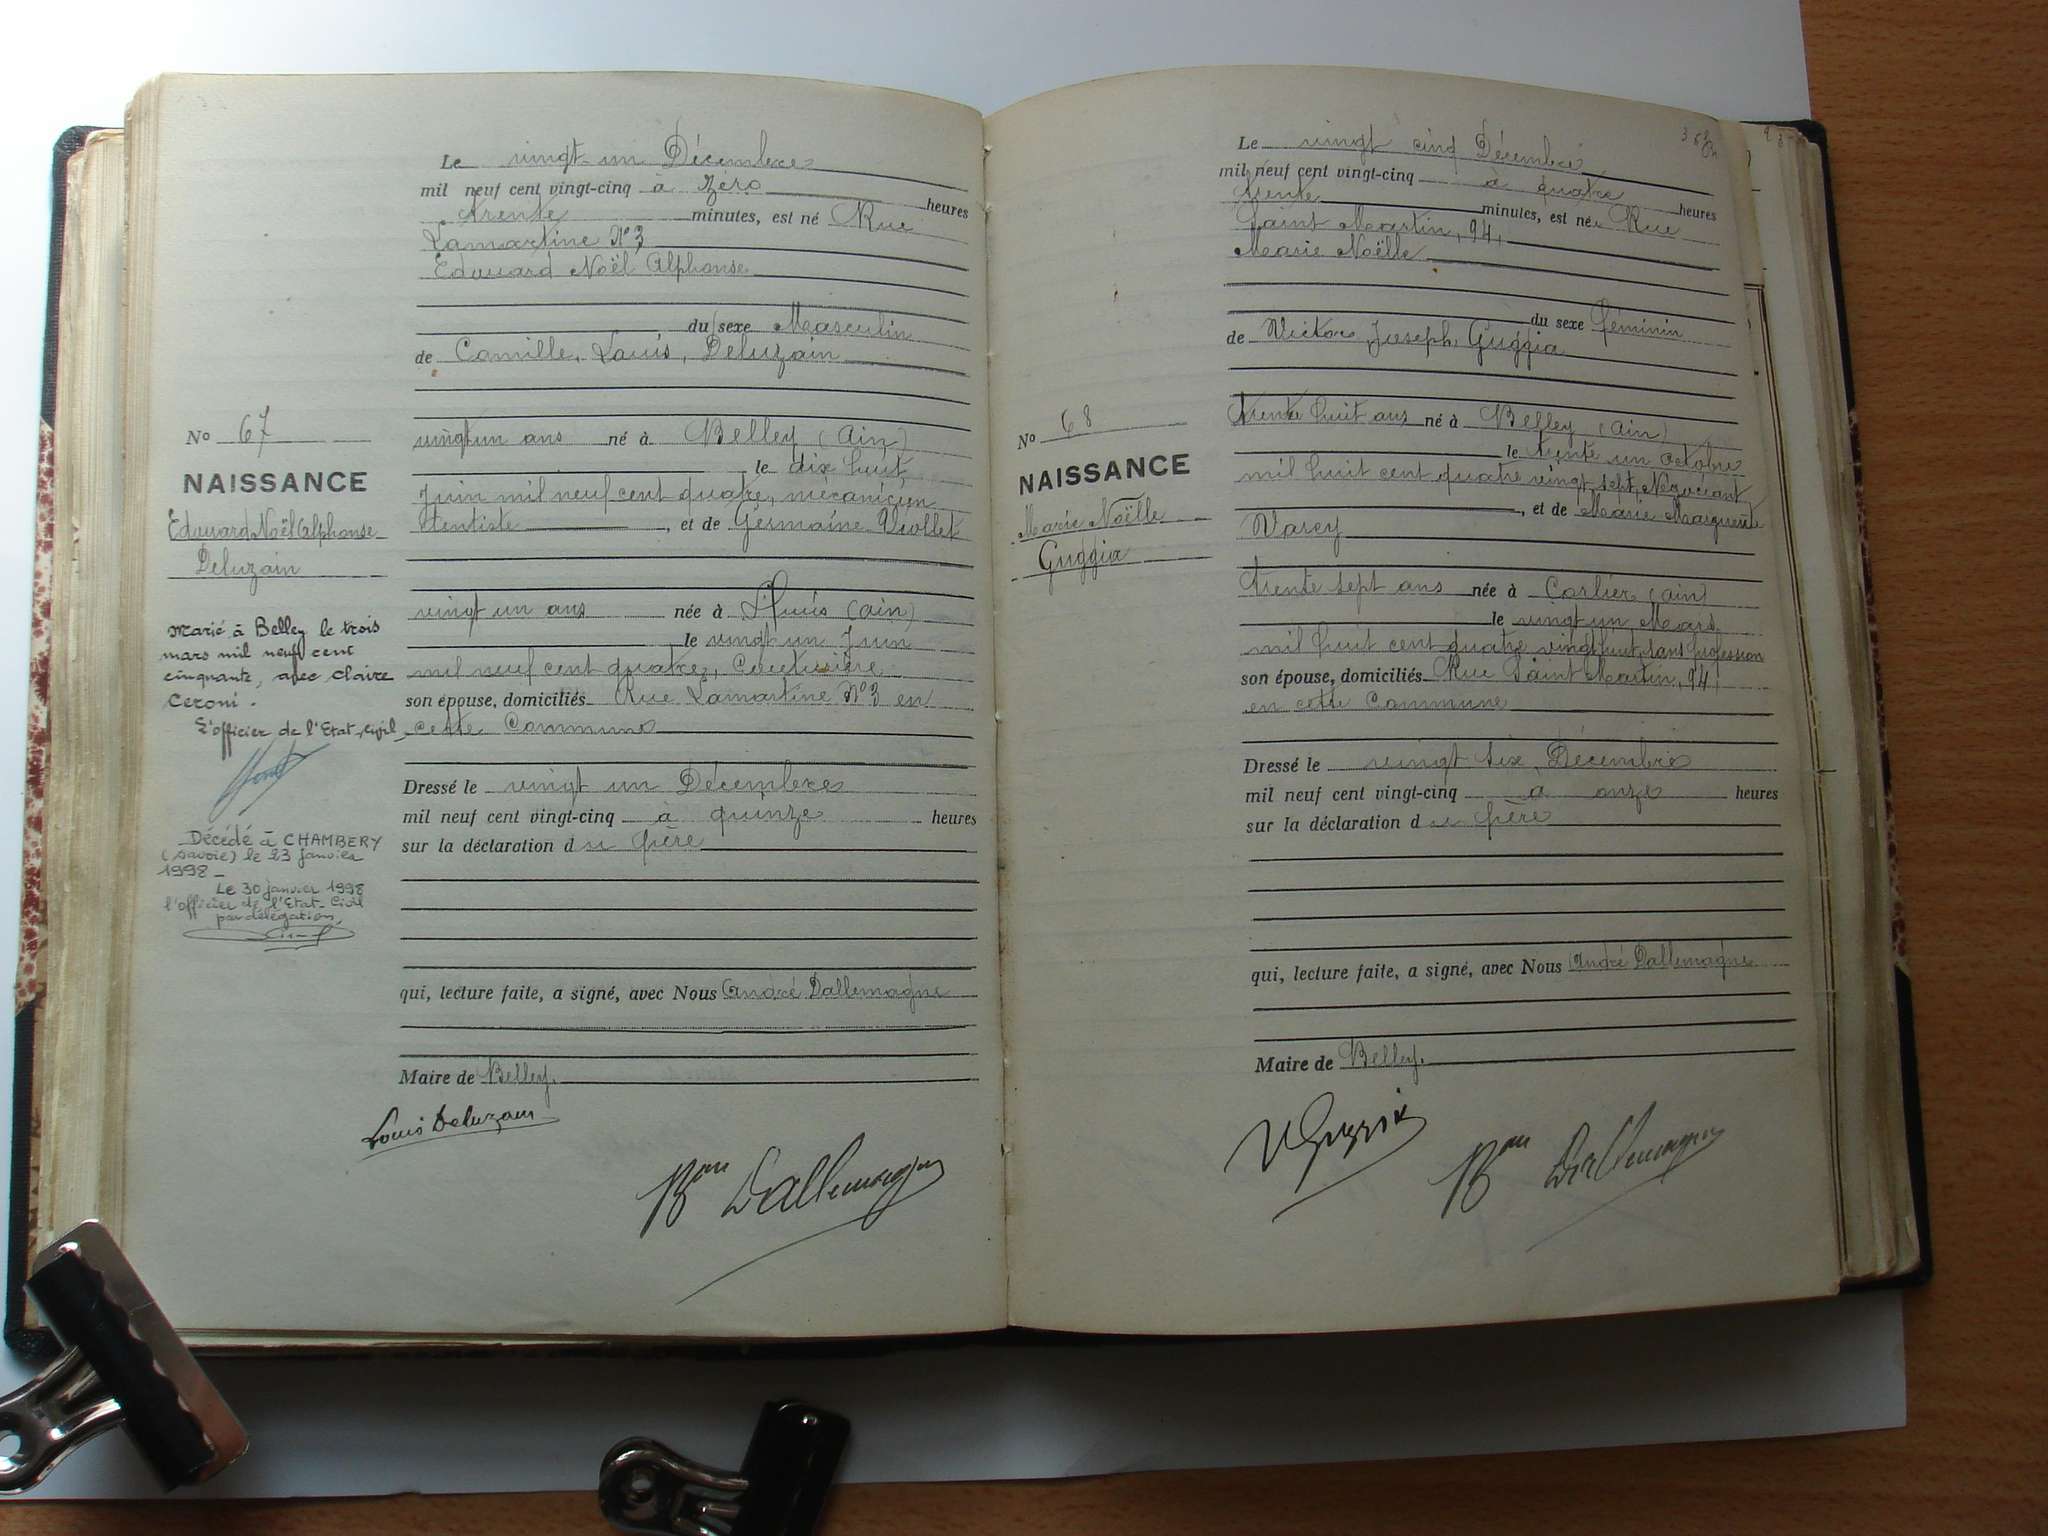 Le vingt un Décembre
mil neuf cent vingt-cinq à zéro heures
trente minutes, est né Rue
Lamartine N°3
Edouard Noël Alphonse
du sexe Masculin
de Camille, Louis, Deluzain
vingt un ans né à Belley (Ain)
le dix huit
Juin mil neuf cent quatre, mécanicien
dentiste, et de Germaine Viollet
vingt un ans née à L'huis (ain)
le vingt un Juin
mil neuf cent quatre, Couturière
son épouse, domiciliés Rue Lamartine N°3 en
cette Commune
Dressé le vingt un Décembre
mil neuf cent vingt-cinq à quinze heures
sur la déclaration du père
qui, lecture faite, a signé, avec Nous André Dallemagne
Maire de Belley.
Louis Deluzain
Bon Dallemagne
No 67
NAISSANCE
Edouard Noël Alphonse
Deluzain
Marié à Belley le trois
mars mil neuf cent
cinquante, avec Claire
Ceroni.
L'officier de l'Etat-civil,
Décédé à CHAMBERY
(Savoie) le 23 janvier
1998 -
Le 30 janvier 1998
l'officier de l'Etat-Civil
par délégation,
Le vingt cinq Décembre
mil neuf cent vingt-cinq à quatre heures
trente minutes, est née Rue
Saint Martin, 94,
Marie Noëlle
du sexe féminin
de Victor, Joseph, Guggia
trente huit ans né à Belley (ain)
le trente un octobre
mil huit cent quatre vingt sept, Négociant
, et de Marie Marguerite
Varey
trente sept ans née à Corlier (ain)
le vingt un Mars
mil huit cent quatre vingt huit, sans profession
son épouse, domiciliés Rue Saint Martin, 94,
en cette Commune
Dressé le vingt six Décembre
mil neuf cent vingt-cinq à onze heures
sur la déclaration du père
qui, lecture faite, a signé, avec Nous André Dallemagne
Maire de Belley.
V Guggia
Bon Dallemagne
No 68
NAISSANCE
Marie Noëlle
Guggia